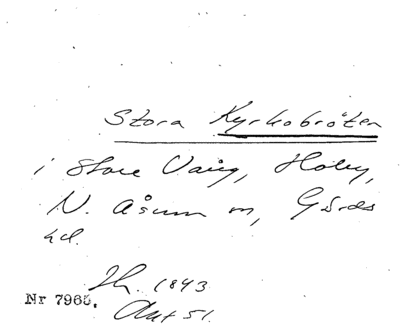 Stora Kyrkobröten
i Stora Vång, Holey,
N. Åsum sn, Gärds
hd.
Sk. 1843
Nr 7965.
Akt 51.